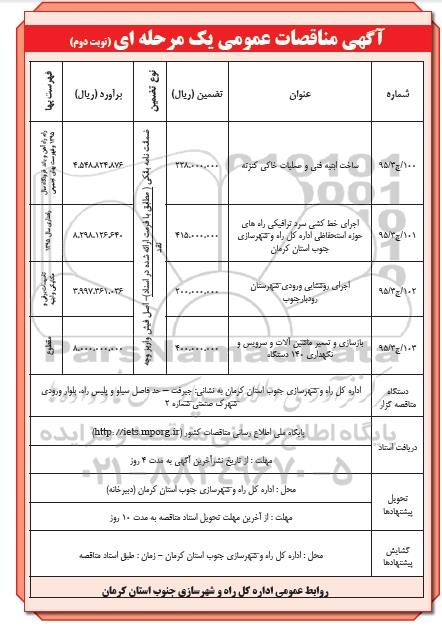 آگهی مناقصات عمومی یک مرحله ای (نوبت دوم)
شماره
عنوان
تضمین (ریال)
نوع تضمین
برآورد (ریال)
فهرست بها
۹۵/۳/ج/۱۰۰
ساخت ابنیه فنی و عملیات خاکی کنزته
۲۲۸،۰۰۰،۰۰۰
ضمانت نامه بانکی ( مطابق با فرمت ارائه شده در اسناد)- اصل فیش واریز وجه نقد
۴،۵۴۸،۸۲۴،۸۷۶
۹۵/۳/ج/۱۰۱
اجرای خط کشی سرد ترافیکی راه های
حوزه استحفاظی اداره کل راه و شهرسازی
جنوب استان کرمان
۴۱۵،۰۰۰،۰۰۰
۸،۲۹۸،۱۲۶،۶۴۰
راهداری سال ۱۳۹۵
۹۵/۳/ج/۱۰۲
اجرای روشنایی ورودی شهرستان
رودبارجنوب
۲۰۰،۰۰۰،۰۰۰
۳،۹۹۷،۳۶۱،۰۳۶
۹۵/۳/ج/۱۰۳
بازسازی و تعمیر ماشین آلات و سرویس و
نگهداری ۱۴۰ دستگاه
۴۰۰،۰۰۰،۰۰۰
۸،۰۰۰،۰۰۰،۰۰۰
مقطوع
دستگاه
مناقصه گزار
اداره کل راه و شهرسازی جنوب استان کرمان به نشانی: جیرفت – حد فاصل سیلو و پلیس راه، بلوار ورودی
شهرک صنعتی شماره ۲
دریافت اسناد
پایگاه ملی اطلاع رسانی مناقصات کشور (http://iets.mporg.ir)
مهلت : از تاریخ نشرآخرین آگهی به مدت ۴ روز
تحویل
پیشنهادها
محل : اداره کل راه و شهرسازی جنوب استان کرمان (دبیرخانه)
مهلت : از آخرین مهلت تحویل اسناد مناقصه به مدت ۱۰ روز
گشایش
پیشنهادها
محل : اداره کل راه و شهرسازی جنوب استان کرمان – زمان : طبق اسناد مناقصه
روابط عمومی اداره کل راه و شهرسازی جنوب استان کرمان
ParsNamadData
پایگاه اطلاع رسانی مناقصات و مزایده
۰۲۱-۸۸۳۴۹۶۷۰-۵